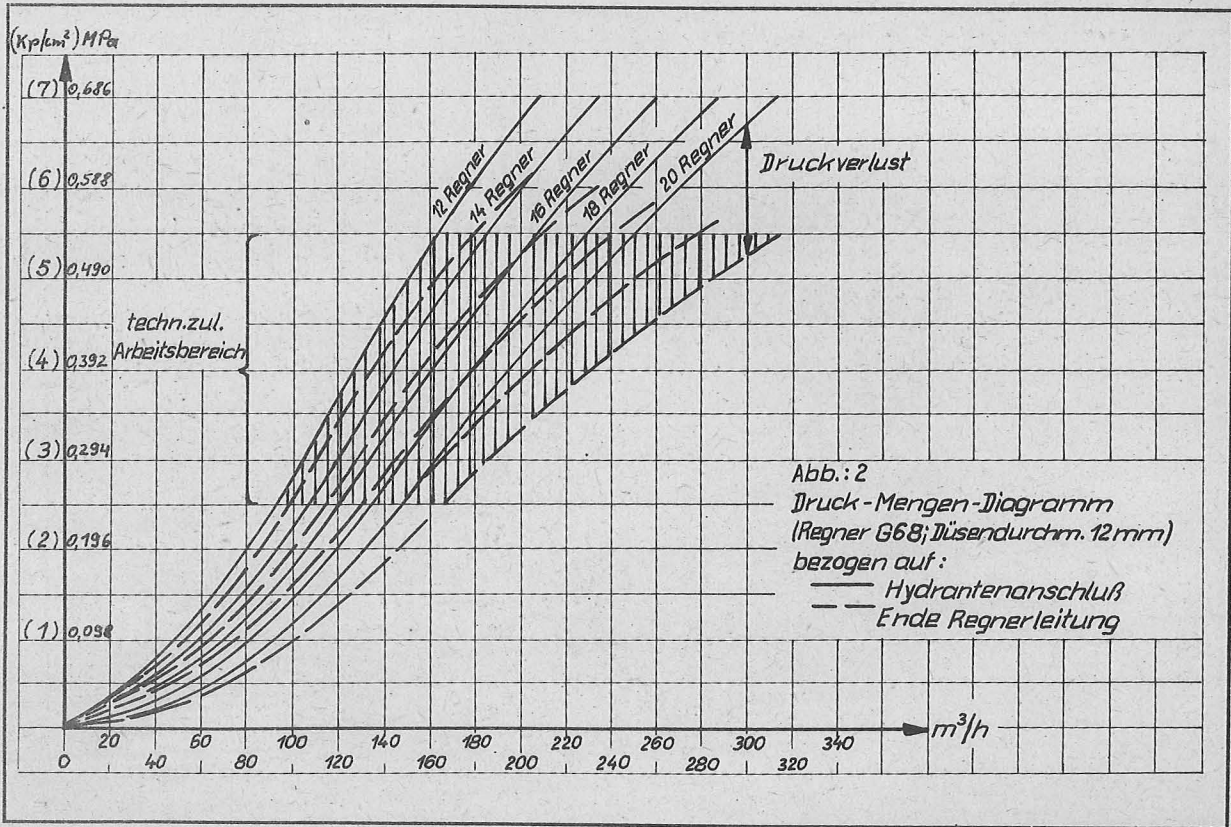 (Kp/cm²) MPa
(7) 0,686
(6) 0,588
(5) 0,490
(4) 0,392
(3) 0,294
(2) 0,196
(1) 0,098
techn.zul.
Arbeitsbereich
12 Regner
14 Regner
16 Regner
18 Regner
20 Regner
Druckverlust
Abb.: 2
Druck-Mengen-Diagramm
(Regner G68; Düsendurchm. 12mm)
bezogen auf:
Hydrantenanschluß
Ende Regnerleitung
m³/h
20 60 100 140 180 220 260 300 340
0 40 80 120 160 200 240 280 320